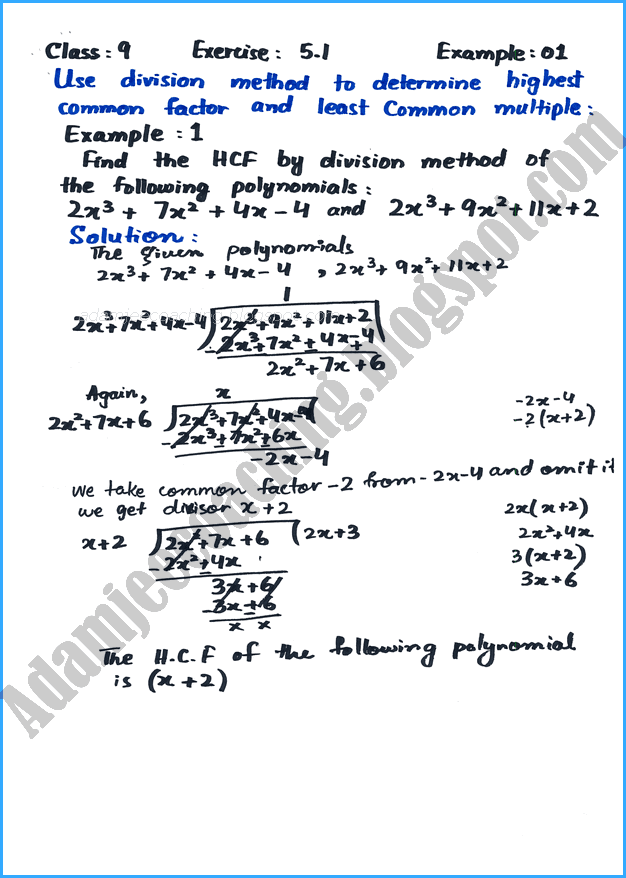 Class : 9 Exercise : 5.1 Example : 01
Use division method to determine highest
common factor and least Common multiple :
Example : 1
Find the HCF by division method of
the following polynomials :
2x³ + 7x² + 4x - 4 and 2x³ + 9x² + 11x + 2
Solution :
The given polynomials
2x³ + 7x² + 4x - 4 , 2x³ + 9x² + 11x + 2
1
2x³+7x²+4x-4) 2x³+9x²+11x+2
-2x³+7x²+4x-4
2x²+7x+6
Again, x
2x²+7x+6 ) 2x³+7x²+4x-4
-2x³+7x²+6x
-2x-4
-2x-4
-2(x+2)
we take common factor -2 from -2x-4 and omit it
we get divisor x+2
x+2 ) 2x²+7x+6 ( 2x+3
-2x²+4x
3x+6
-3x+6
x x
2x(x+2)
2x²+4x
3(x+2)
3x+6
The H.C.F of the following polynomial
is (x+2)
Adamjeecoaching.blogspot.com